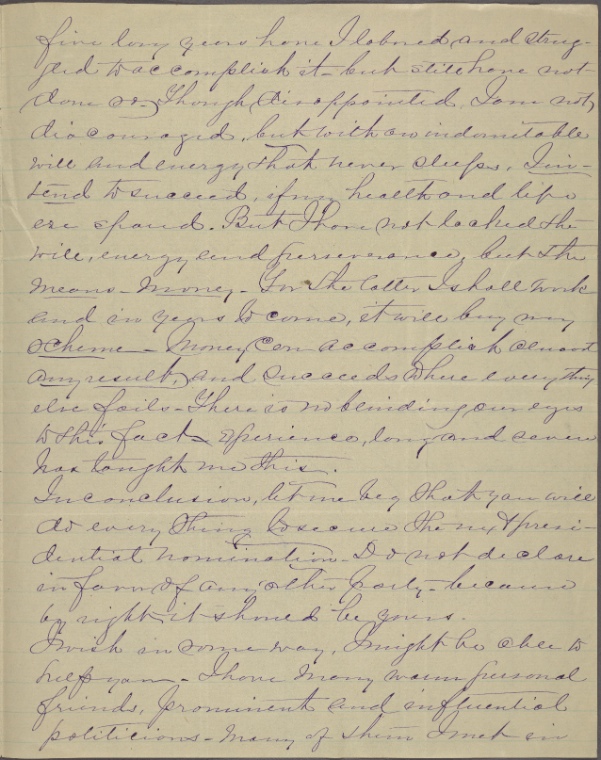 five long years have I labored and strug-
gled to accomplish it - but still have not
done so, Though disappointed, I am not
discouraged, but with an indomitable
will and energy that never sleeps, I in-
tend to succeed, if my health and life
are spared. But I have not lacked the
will, energy and perseverance, but the
means - money - For the latter I shall work
and in years to come, it will buy my
scheme - Money can accomplish almost
any result, and succeeds where everything
else fails - There is no blinding our eyes
to this fact - Experience, long and severe
has taught me this.
In conclusion, let me beg that you will
do every thing to secure the next presi-
dential nomination - Do not declare
in favor of any other party - because
by right it should be yours.
I wish in some way, I might be able to
help you - I have many warm personal
friends, prominent and influential
politicians - Many of them I met in